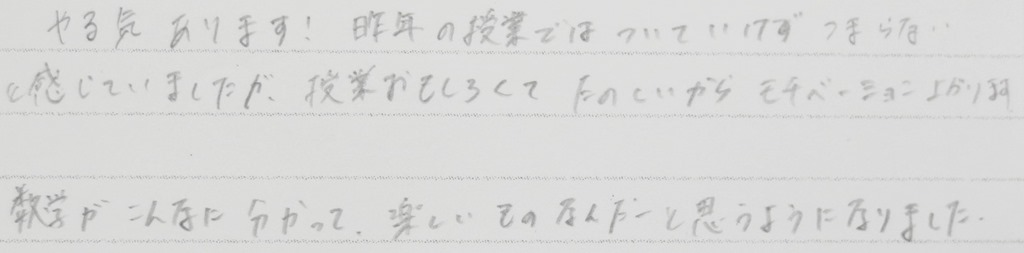 やる気あります! 昨年の授業ではついていけずつまらない
と感じていましたが、授業おもしろくてたのしいからモチベーション上がりました
数学がこんなに分かって、楽しいものなんだーと思うようになりました。